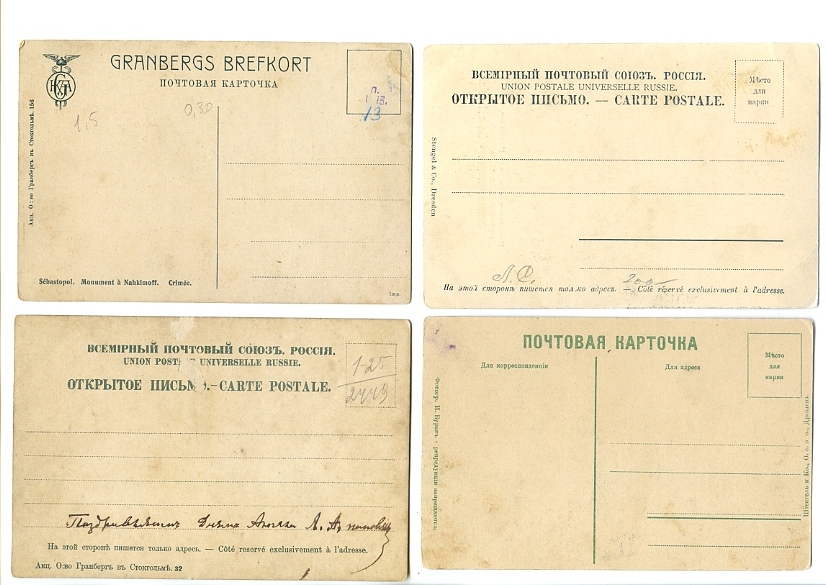 GRANBERGS BREFKORT
ПОЧТОВАЯ КАРТОЧКА
1,5
0,30
13
Акц. О:во Гранбергъ въ Стокгольмѣ. 156
Sébastopol. Monument à Nahkimoff. Crimée.
Imp.
ВСЕМІРНЫЙ ПОЧТОВЫЙ СОЮЗЪ. РОССІЯ.
UNION POSTALE UNIVERSELLE RUSSIE.
ОТКРЫТОЕ ПИСЬМО. — CARTE POSTALE.
Мѣсто
для
марки
Stengel & Co., Dresden
На этой сторонѣ пишется только адресъ. — Côté réservé exclusivement à l'adresse.
ВСЕМІРНЫЙ ПОЧТОВЫЙ СОЮЗЪ. РОССІЯ.
UNION POSTA UNIVERSELLE RUSSIE.
ОТКРЫТОЕ ПИСЬМ .—CARTE POSTALE.
1-25
2449
На этой сторонѣ пишется только адресъ. — Côté reservé exclusivement à l'adresse.
Акц. О:во Гранбергъ въ Стокгольмѣ. 32
ПОЧТОВАЯ КАРТОЧКА
Для корреспонденціи
Для адреса
Мѣсто
для
марки